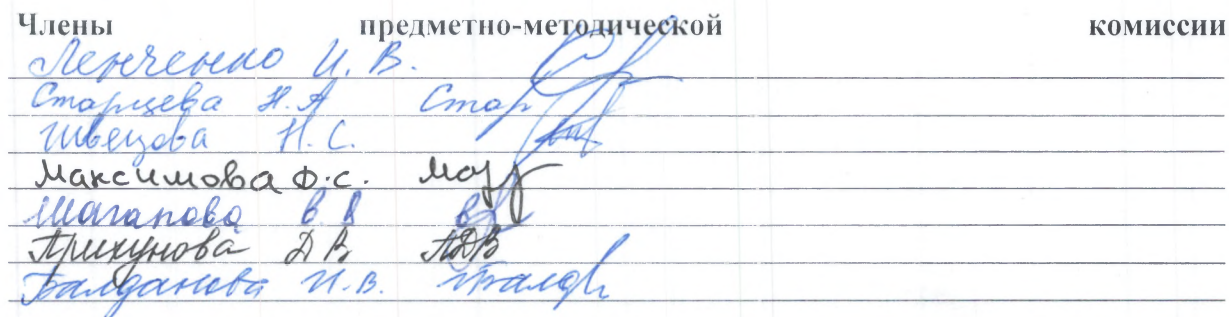 Члены предметно-методической комиссии
Ленченко И. В.
Старцева Н.А Стар
Швецова Н. С.
Максимова Ф.С.
Шагапова В. В
Прихунова Д В ПДВ
Балданова И.В. Балд